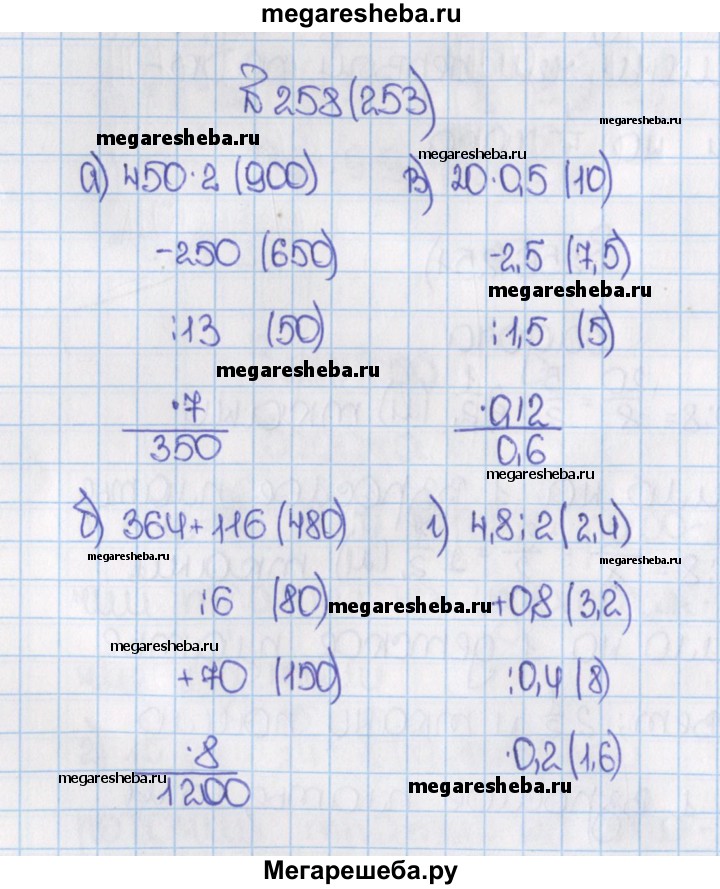 megaresheba.ru
№ 258 (253)
megaresheba.ru
megaresheba.ru
megaresheba.ru
а) 450·2 (900)
-250 (650)
:13 (50)
megaresheba.ru
·7
350
в) 20·0,5 (10)
-2,5 (7,5)
megaresheba.ru
:1,5 (5)
·0,12
0,6
megaresheba.ru
б) 364+116 (480)
megaresheba.ru
:6 (80)
megaresheba.ru
+70 (150)
·8
megaresheba.ru
1200
г) 4,8:2 (2,4)
megaresheba.ru
+0,8 (3,2)
:0,4 (8)
·0,2 (1,6)
megaresheba.ru
Мегарешеба.ру